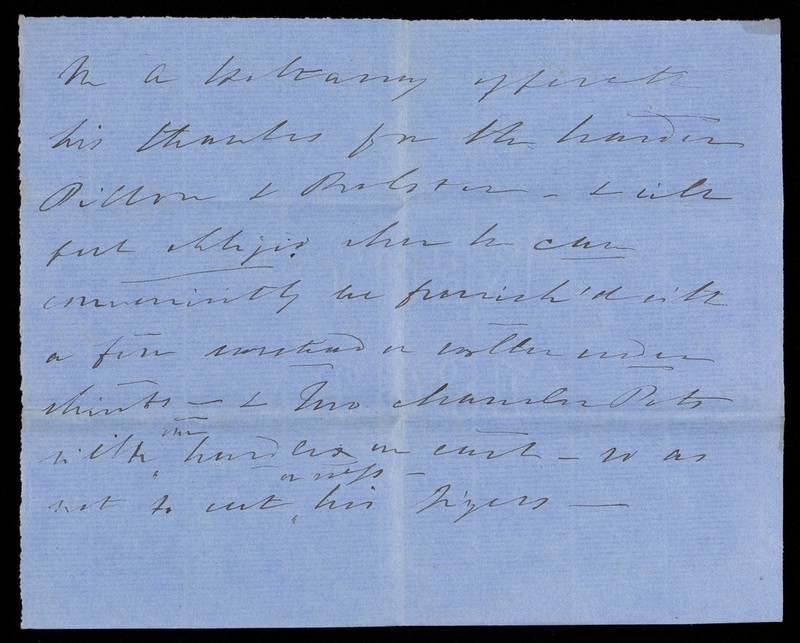 Mr A offereth
his thanks for the harder
Pillow & Bolster - & will
feel obliged when he can
conveniently be furnish'd with
a few worsted or cotton under
shirts - & Two Chamber Pots
with handles on each - so as
not to cut his fingers -